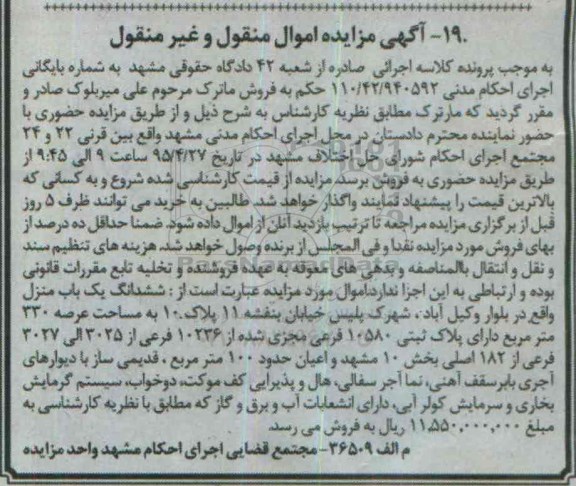 ۱۹- آگهی مزایده اموال منقول و غیر منقول
به موجب پرونده کلاسه اجرائی صادره از شعبه ۴۲ دادگاه حقوقی مشهد به شماره بایگانی
اجرای احکام مدنی ۱۱۰/۴۲/۹۴۰۵۹۲ حکم به فروش ماترک مرحوم علی میربلوک صادر و
مقرر گردید که مارترک مطابق نظریه کارشناس به شرح ذیل و از طریق مزایده حضوری با
حضور نماینده محترم دادستان در محل اجرای احکام مدنی مشهد واقع بین قرنی ۲۲ و ۲۴
مجتمع اجرای احکام شورای حل اختلاف مشهد در تاریخ ۹۵/۴/۲۷ ساعت ۹ الی ۹:۴۵ از
طریق مزایده حضوری به فروش برسد. مزایده از قیمت کارشناسی شده شروع و به کسانی که
بالاترین قیمت را پیشنهاد نمایند واگذار خواهد شد. طالبین به خرید می توانند ظرف ۵ روز
قبل از برگزاری مزایده مراجعه تا ترتیب بازدید آنان از اموال داده شود. ضمنا حداقل ده درصد از
بهای فروش مورد مزایده نقدا و فی المجلس از برنده وصول خواهد شد. هزینه های تنظیم سند
و نقل و انتقال بالمناصفه و بدهی های معوقه به عهده فروشنده و تخلیه تابع مقررات قانونی
بوده و ارتباطی به این اجرا ندارد.اموال مورد مزایده عبارت است از : ششدانگ یک باب منزل
واقع در بلوار وکیل آباد ، شهرک پلیس خیابان بنفشه ۱۱ پلاک ۱۰ به مساحت عرصه ۳۳۰
متر مربع دارای پلاک ثبتی ۱۰۵۸۰ فرعی مجزی شده از ۱۰۲۳۶ فرعی از ۳۰۲۵ الی ۳۰۲۷
فرعی از ۱۸۲ اصلی بخش ۱۰ مشهد و اعیان حدود ۱۰۰ متر مربع ، قدیمی ساز با دیوارهای
آجری بابرسقف آهنی، نما آجر سفالی، هال و پذیرایی کف موکت، دوخواب، سیستم گرمایش
بخاری و سرمایش کولر آبی، دارای انشعابات آب و برق و گاز که مطابق با نظریه کارشناسی به
مبلغ ۱۱,۵۵۰,۰۰۰,۰۰۰ ریال به فروش می رسد.
م الف ۳۶۵۰۹- مجتمع قضایی اجرای احکام مشهد واحد مزایده